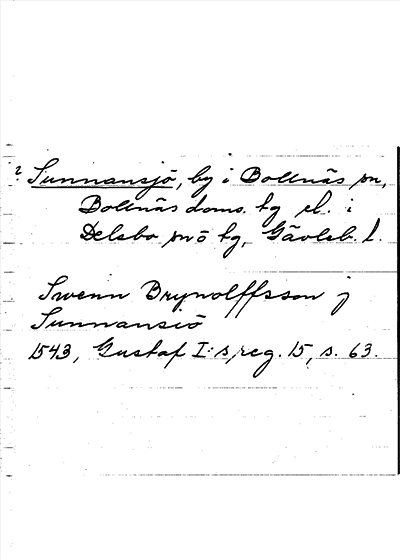 ? Sunnansjö, by i Bollnäs sn,
Bollnäs doms. tg el. i
Delsbo sn o tg, Gävleb. l.
Swenn Brynolffsson j
Sunnansiö
1543, Gustaf I:s reg. 15, s. 63.